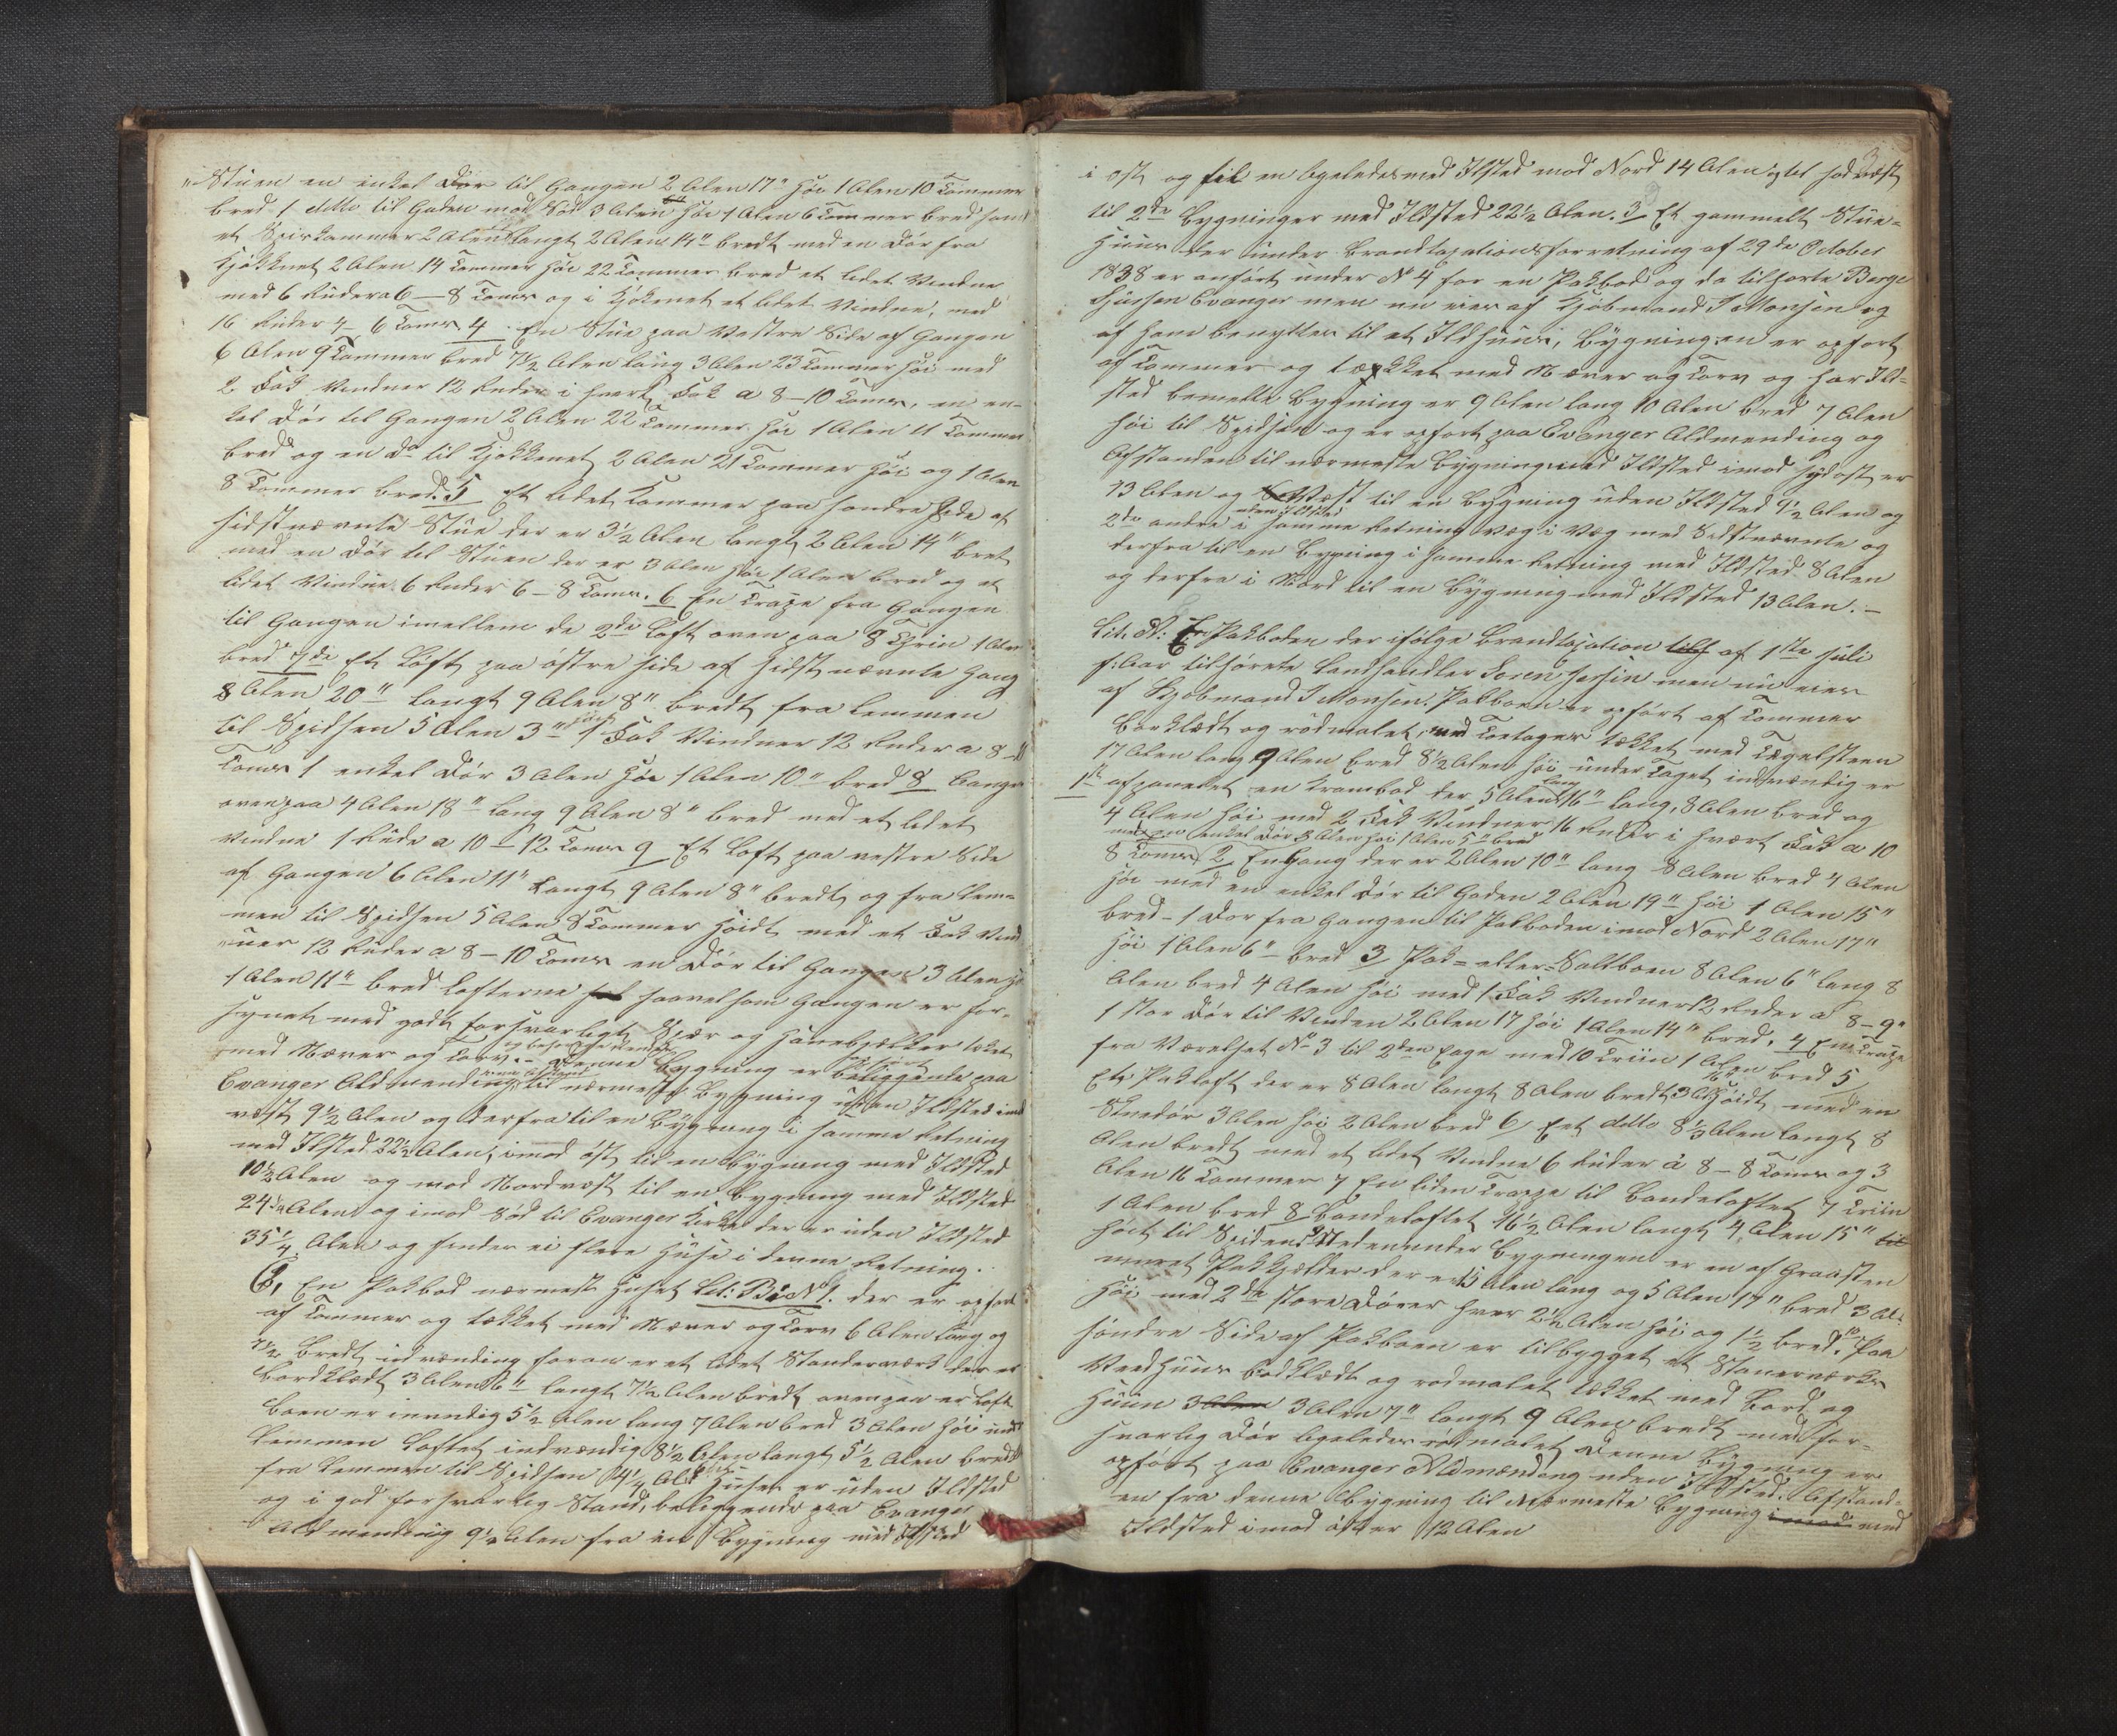 Stuen en enkel Dør til Gangen 2 Alen 17" høi 1 Alen 10 Tommer
bred 1 ditto til Gaden mod Sød 3 Alen høi 1 Alen 6 Tommer bred samt
et Spiskammer 2 Alen langt 2 Alen 14" bredt med en Dør fra
Kjøkknet 2 Alen 14 Tommer høi 22 Tommer bred et lidet Vindue
med 6 Ruder a 6 – 8 Tomr og i Kjøkenet et lidet Vindue, med
16 Ruder 4 – 6 Tomr. 4 En Stue paa Vestre Side af Gangen
6 Alen 9 Tommer bred 7 1/2 Alen lang 3 Alen 23 Tommer høi med
2 Fak Vinduer 12 Ruder i hvert Fak a 8 – 10 Tomr, en en-
kel Dør til Gangen 2 Alen 22 Tommer høi 1 Alen 11 Tommer
bred og en do til Kjøkkenet 2 Alen 21 Tommer høi og 1 Alen
8 Tommer bred. 5 Et lidet Kammer paa søndre Side af
sidstnævnte Stue der er 3 1/2 Alen langt 2 Alen 14" bret
med en Dør til Stuen der er 3 Alen høi 1 Alen bred og et
lidet Vindue 6 Ruder 6 – 8 Tomr. 6 En Trappe fra Gangen
til Gangen imellem de 2de Loft oven paa 8 Trin 1 Alen
bred 7de Et Loft paa østre side af sidst nævnte Gang
8 Alen 20" langt 9 Alen 8" bredt fra Lemmen
til Spidsen 5 Alen 3" høit 1 Fak Vinduer 12 Ruder a 8 –
Tomr 1 enkel Dør 3 Alen høi 1 Alen 10" bred 8 Gangen
ovenpaa 4 Alen 18" lang 9 Alen 8" bred med et lidet
Vindue 1 Rude a 10 – 12 Tomr 9 Et Loft paa vestre Side
af Gangen 6 Alen 11" langt 9 Alen 8" bredt og fra Lem-
men til Spidsen 5 Alen 8 Tommer høidt med et Fak Vind
uer 12 Ruder a 8 – 10 Tomr en Dør til Gangen 3 Alen
1 Alen 11" bred Lofterne saavelsom Gangen er for-
synet med godt forsvarligt Spær og Hanebjælker tækket
med Næver og Torv. – Denne Bygning er beliggende paa
Evanger Aldmending til nærmeste Bygning uden Ildsted imod
væst 9 1/2 Alen og derfra til en Bygning i samme Retning
med Ilsted 22 1/2 Alen, imod øst til en Bygning med Ildsted
10 1/2 Alen og mod Nordvæst til en Bygning med Ildsted
24 1/4 Alen og imod Sød til Evanger Kirke der er uden Ildsted
35 1/4 Alen og findes ei flere Huse i denne Retning.
2, En Pakbod nærmest Huset Lit: B: No 1. der er opført
af Tommer og tækket med Næver og Torv 6 Alen lang og
7 1/2 bredt indvændig foran er et lidet Standerværk der er
bordklædt 3 Alen 6" langt 7 1/2 Alen bredt, ovenpaa er Loft
boen er invendig 5 1/2 Alen lang 7 Alen bred 3 Alen høi under
Lemmen Loftet indvændig 8 1/2 Alen langt 5 1/2 Alen bredt
fra Lemmen til Spidsen 4 1/4 Al Huset er uden Ildsted
og i god forsvarlig Stand, beliggende paa Evanger
Aldmending 9 1/2 Alen fra en Bygning med Ilsted
3
i øst og til en ligeledes med Ilsted mod Nord 14 Alen og til sødvæst
til 2de Bygninger med Ildsted 22 1/2 Alen. 3 Et gammelt Stue-
Huus der under Brandtaxationsforretning af 29de October
1838 er anført under No 4 for en Pakbod og da tilhørte Berge
Evanger men nu eies af Kjøbmand I Monsen og
af ham benyttes til et Ildhuus, Bygningen er opført
af Tømmer og tækket med Næver og Torv og har Ild-
sted bemelte Bygning er 9 Alen lang 10 Alen bred 7 Alen
høi til Spidsen og er opført paa Evanger Aldmending og
Afstanden til nærmeste Bygning med Ildsted imod sydost er
13 Alen og Væst til en Bygning uden Ildsted 9 1/2 Alen og
uden Ildsted
2de andre i samme Retning væg i væg med Sidstnævnte og
derfra til en Bygning i samme Retning med Ildsted 8 Alen
og derfra i Nord til en Bygning med Ildsted 13 Alen. –
Lit. A: En Pakboden der ifølge Brandtaxation af 1ste Juli
f: Aar tilhørete Landhandler Søren men nu eies
af Kjøbmand I Monsen. Pakboen er opført af Tømmer
bordklædt og rødmalet, med Toetages tækket med Tegelsteen
17 Alen lang 9 Alen bred 8 1/2 Alen høi under Taget indvændig er
1ste afpanelet en Krambod der 5 Alen 16" lang, 8 Alen bred og
4 Alen høi med 2 Fak Vinduer 16 Ruder i hvært Fak a 10
med en enkel Dør 3 Alen høi 1 Alen 5" bred
8 Tomr. 2 En Gang der er 2 Alen 10" lang 8 Alen bred 4 Alen
høi med en enkel Dør til Gaden 2 Alen 19" høi 1 Alen 15"
bred – 1 Dør fra Gangen til Pakboden imod Nord 2 Alen 17"
høi 1 Alen 6" bred 3 Pak= eller Saltboen 8 Alen 6" lang 8
Alen bred 4 Alen høi med 1 Fak Vinduer 12 Ruder a 8 – 9"
1 stor Dør til 2 Alen 17 høi 1 Alen 14" bred. 4 En Trappe
fra Værelset No 3 til 2den Etage med 10 Triin 1 Alen bred 5
Et Pakloft der er 8 Alen langt 8 Alen bredt 3 Al 16" høidt, med en
Dør 3 Alen høi 2 Alen bred 6 Eet ditto 8 1/2 Alen langt 8
Alen bredt med et lidet Vindue 6 Ruder á 8 – 8 Tomr og 3
Alen 16 Tommer 7 En liden Trappe til Bandeloftet 7 Triin
1 Alen bred 8 Bandeloftet 16 1/2 Alen langt 4 Alen 15"
høit til Spidsen 9 Nedenunder Bygningen er en af Graasten
muret Pakkjælder der er 13 Alen lang og 5 Alen 17" bred 3 Al:
høi med 2de store Dører hver 2 1/2 Alen høi og 1 1/2 bred. 10 Paa
søndre Side af Pakboen er tilbygget et Stanerværks
Veedhuus bordklædt og rødmalet tækket med Bord og
Huun 3 Alen 7" langt 9 Alen bredt med for-
svarlig Dør ligeledes rødmalet, Denne Bygning er
opført paa Evanger Aldmænding uden Ildsted. Afstand-
en fra denne Bygning til nærmeste Bygning med
Ildsted imod øst er 12 Alen